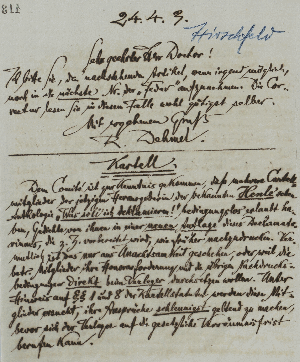 24.4.9.
Hirschfeld
Sehr geehrter Herr Doctor!
Ich bitte Sie, den nachstehenden Artikel, wenn irgend möglich,
noch in die nächste Nr. der „Feder" aufzunehmen. Die Cor-
rectur lesen Sie in diesem Falle wohl gütigst selber.
Mit ergebenem Gruß
R. Dehmel.
Kartell.
Dem Comité ist zur Kenntnis gekommen, daß mehrere Cartell-
mitglieder der jetzigen Herausgeberin der bekannten
Anthologie „Was soll ich deklamieren!" bedingungslos erlaubt ha-
ben, Gedichte von ihnen in einer neuen Auflage dieses Declama-
toriums, die z. Z. vorbereitet wird, wie früher nachzudrucken. Ver-
mutlich ist das nur aus Unachtsamkeit geschehen, oder weil die
Mitglieder ihre Honorarforderung und die übrigen Nachdrucks-
bedingungen direkt beim Verleger durchsetzen wollen. Unter
Hinweis auf §§ 1 und 8 der Kartellstatuten werden diese Mit-
glieder ersucht, ihre Ansprüche schleunigst geltend zu machen,
bevor sich der Verleger auf die gesetzliche
berufen kann.